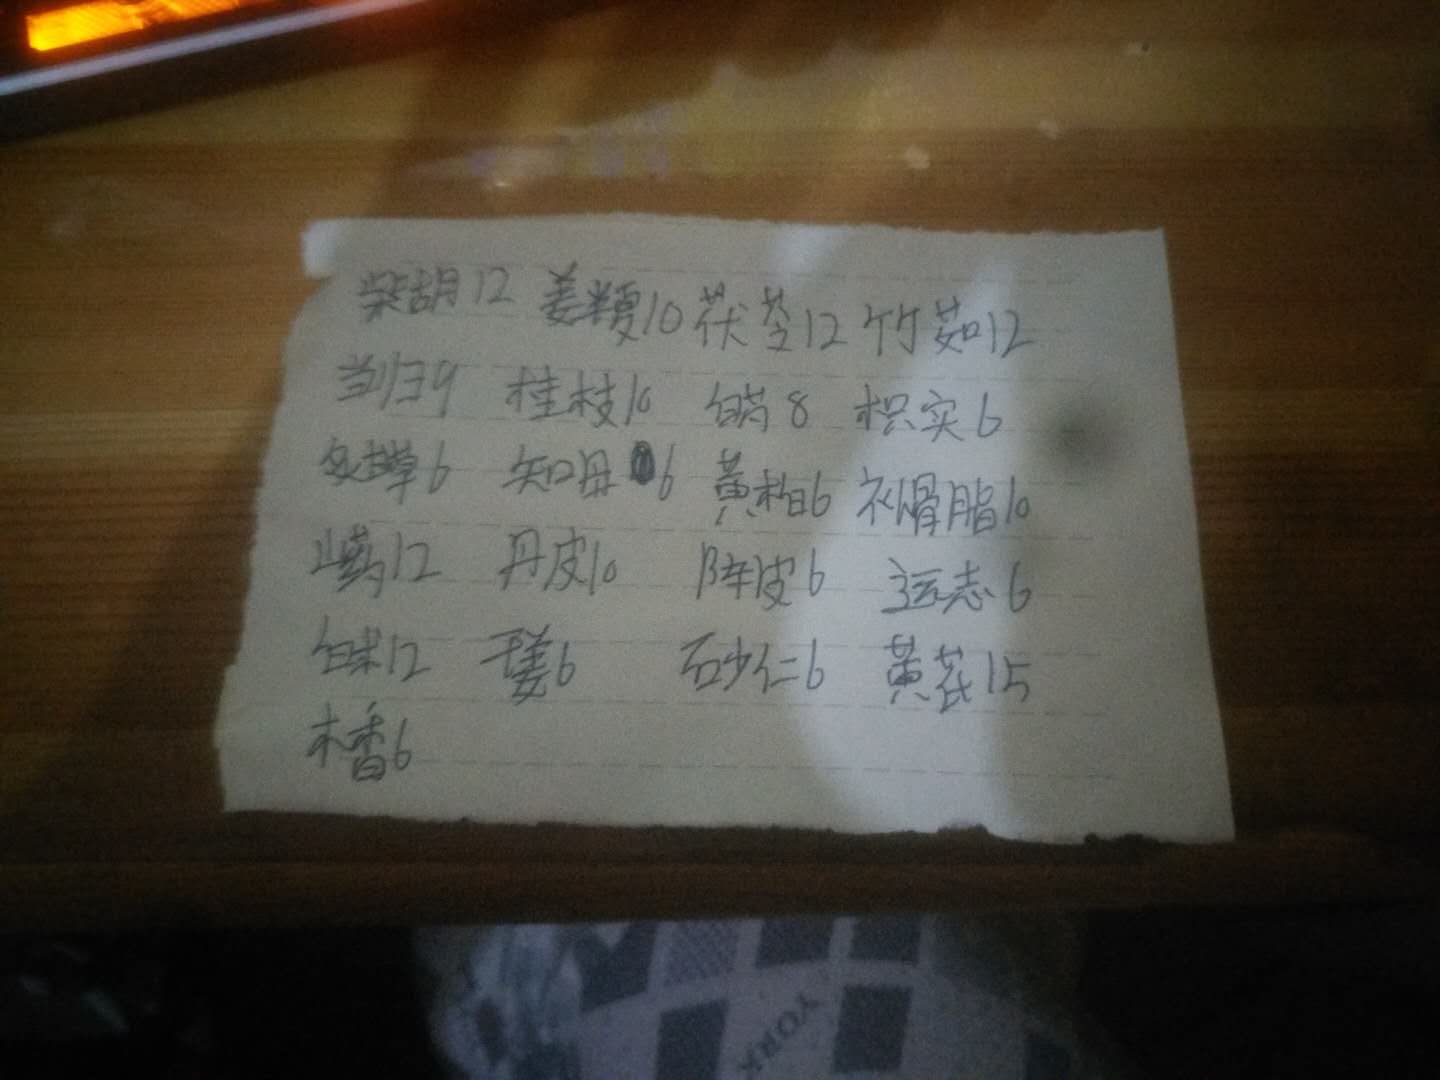 柴胡12 姜粳10 茯苓12 竹茹12
当归9 桂枝10 白芍8 枳实6
炙甘草6 知母6 黄柏6 补骨脂10
山药12 丹皮10 陈皮6 远志6
白术12 干姜6 砂仁6 黄芪15
木香6
YORK